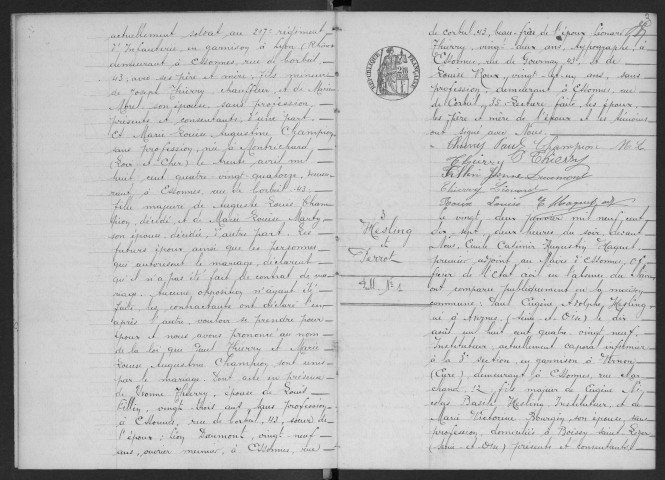 actuellement soldat au 217e régiment
d'Infanterie en garnison à Lyon (Rhône)
demeurant à Essonnes, rue de Corbeil
43, avec ses père et mère, fils mineur
de Joseph Thierry, chauffeur et de Marie
son épouse, sans profession,
présents et consentants. D'une part.
Et Marie Louise Augustine Champion
sans profession, née à Montrichard
(Loir et Cher) le trente avril mil
huit cent quatre vingt quatorze, demeu-
rant à Essonnes, rue de Corbeil 43,
fille majeure de Auguste Louis Cham-
pion, décédé, et de Marie Louise Marty
son épouse décédée. D'autre part. Les
futurs époux ainsi que les personnes
qui autorisent le mariage déclarent
qu'il n'a pas été fait de contrat de ma-
riage. Aucune opposition n'ayant été
faite, les contractants ont déclaré l'un
après l'autre, vouloir se prendre pour
époux et nous avons prononcé au nom
de la loi que Paul Thierry et Marie
Louise Augustine Champion sont unis
par le mariage. Dont acte en présence
de Yvonne Thierry, épouse de Louis
vingt trois ans, sans profession
à Essonnes, rue de Corbeil, 43, sœur de
l'époux; Léon Daumont, vingt neuf
ans, ouvrier à Essonnes, rue
de Corbeil 43, beau-frère de l'époux; Léonard
Thierry, vingt deux ans, typographe, à
Essonnes, rue de Gournay, 43, et de
Louise Roux, vingt et un ans, sans
profession, demeurant à Essonnes, rue
de Corbeil, 35. Lecture faite, les époux,
les père et mère de l'époux et les témoins
ont signé avec Nous.
Thierry Paul Champion M. L.
Thierry Thierry
Yvonne Daumont
Thierry Léonard
Roux Louise E. Haquet
RÉPUBLIQUE FRANÇAISE
3
Hesling
et
Perrot
Le vingt deux janvier mil neuf cent
dix sept, deux heures du soir, devant
Nous, Emile Casimir Augustin Haquet
premier adjoint au Maire d'Essonnes, Of-
ficier de l'Etat civil en l'absence du Maire
ont comparu publiquement en la maison
commune: Paul Eugène Adolphe Hesling
né à (Seine et Oise) le dix
août mil huit cent quatre vingt neuf,
Instituteur, actuellement caporal infirmier
à la 3e section, en garnison à Vernon
(Eure) demeurant à Essonnes, rue Mar-
chand, 12, fils majeur de Eugène Ni-
colas Basile Hesling, Instituteur, et de
Marie Victorine Bourgoin, son épouse, sans
profession, domiciliés à Boissy Saint Léger
(Seine et Oise) présents et consentants.